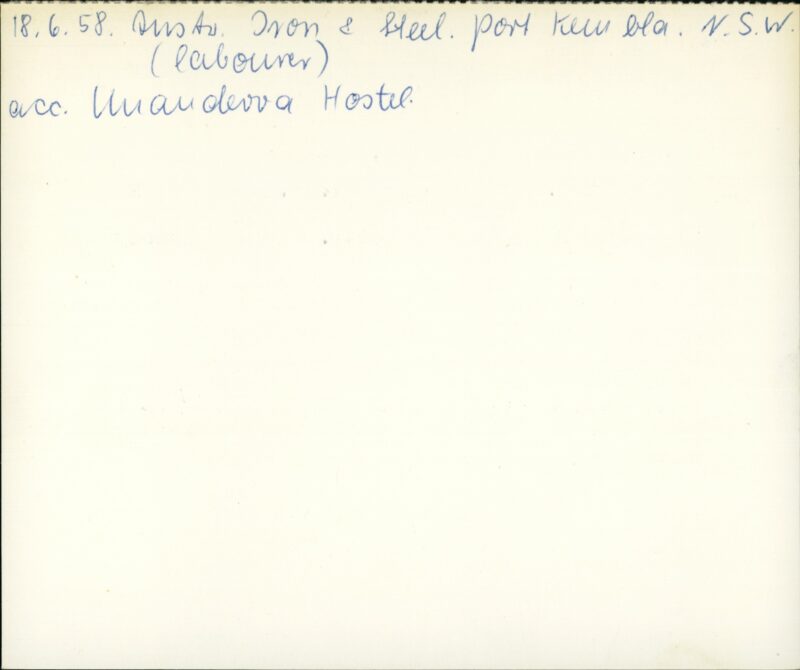 18.6.58. Austr. Iron & Steel. Port Kembla. N.S.W.
(labourer)
acc. Unanderra Hostel.